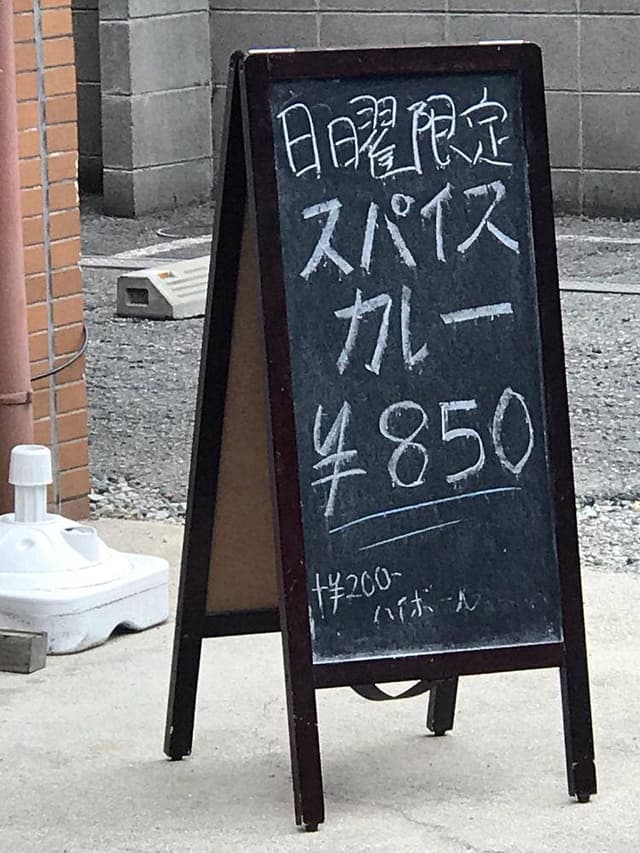 日日曜限定
スパイス
カレー
¥850
+¥200-
ハイボール